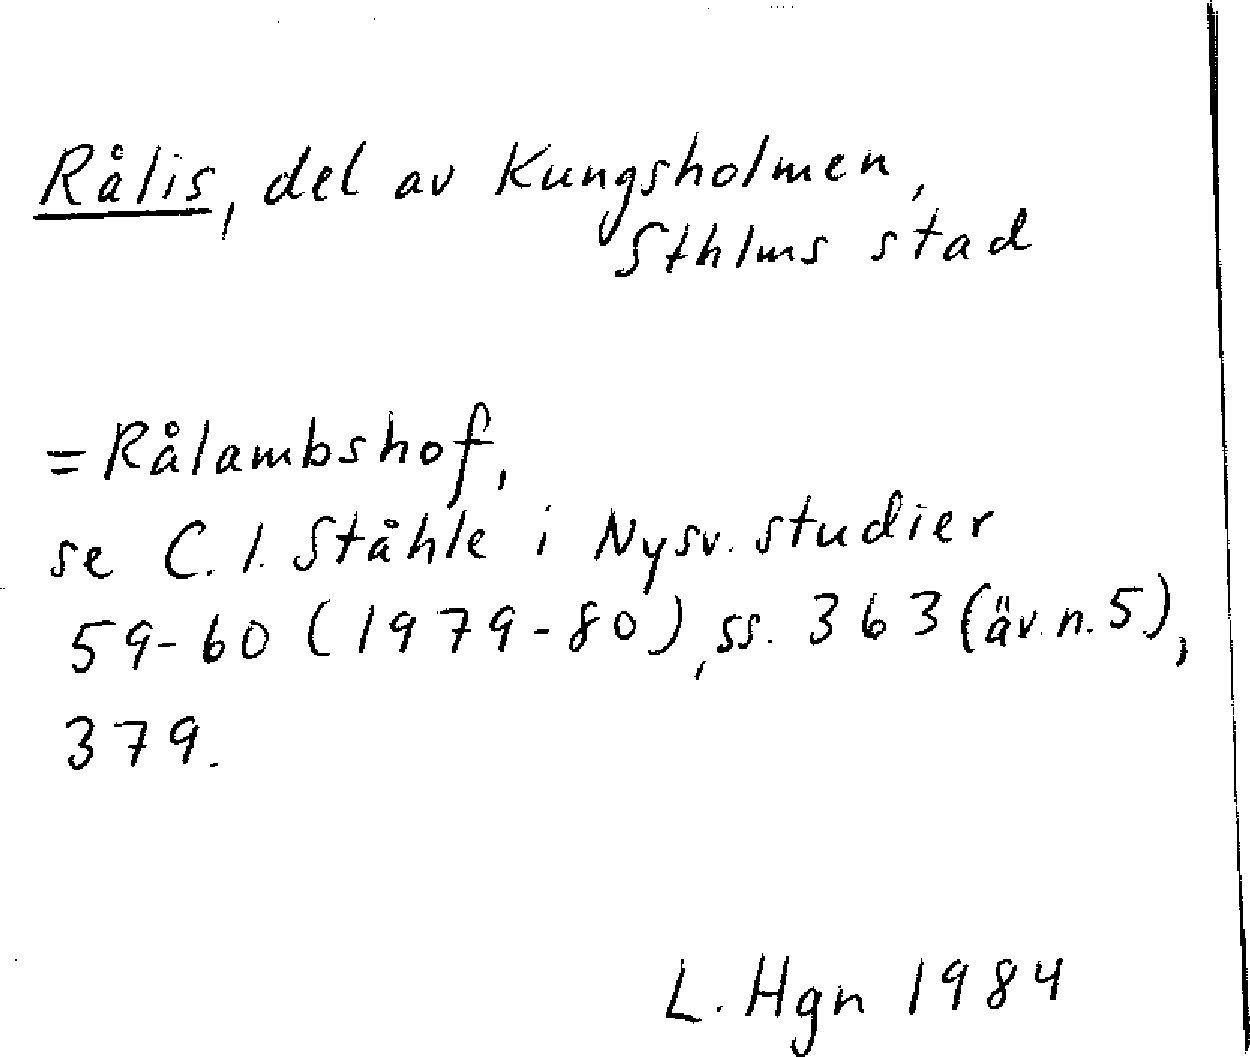 Rålis, del av Kungsholmen,
Sthlms stad
= Rålambshof,
se C. I. Ståhle i Nysv. studier
59-60 (1979-80), ss. 363 (äv. n. 5),
379.
L. Hgn 1984